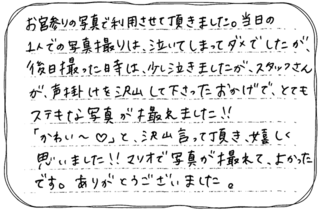 お宮参りの写真で利用させて頂きました。当日の
1人での写真撮りは、泣いてしまってダメでしたが、
後日撮った時は、少し泣きましたが、スタッフさん
が、声掛けを沢山して下さったおかげで、とても
ステキな写真が撮れました!!
「かわい〜♡」と、沢山言って頂き、嬉しく
思いました!!マリオで写真が撮れて、よかった
です。ありがとうございました。